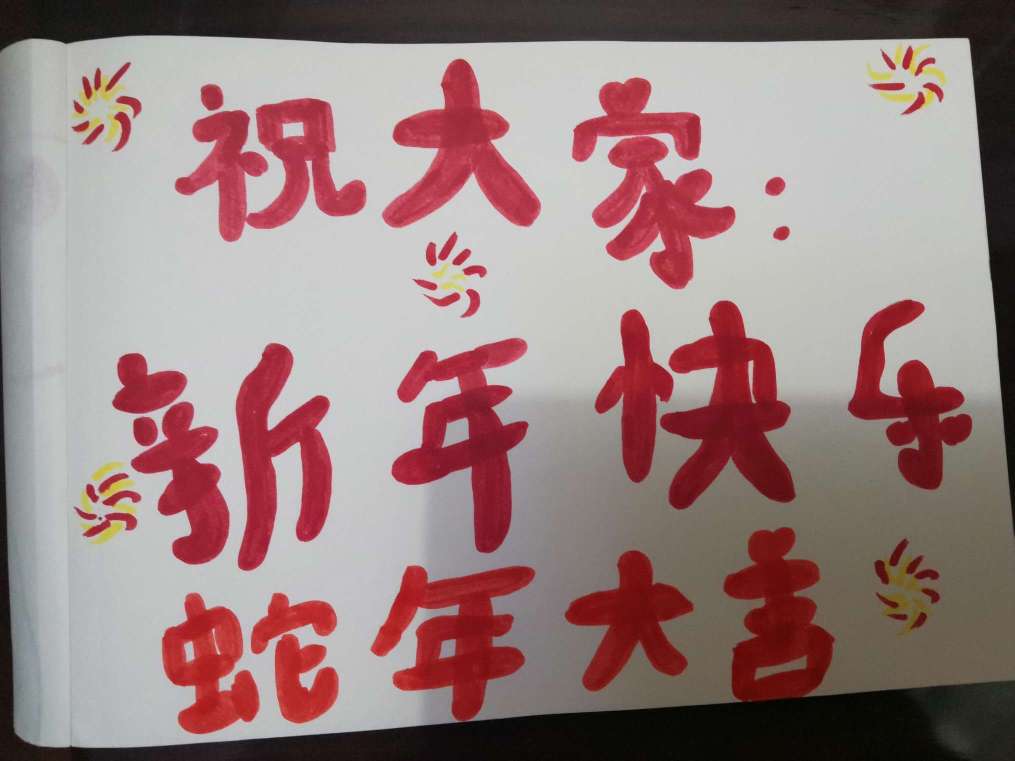 祝大家：
新年快乐
蛇年大吉